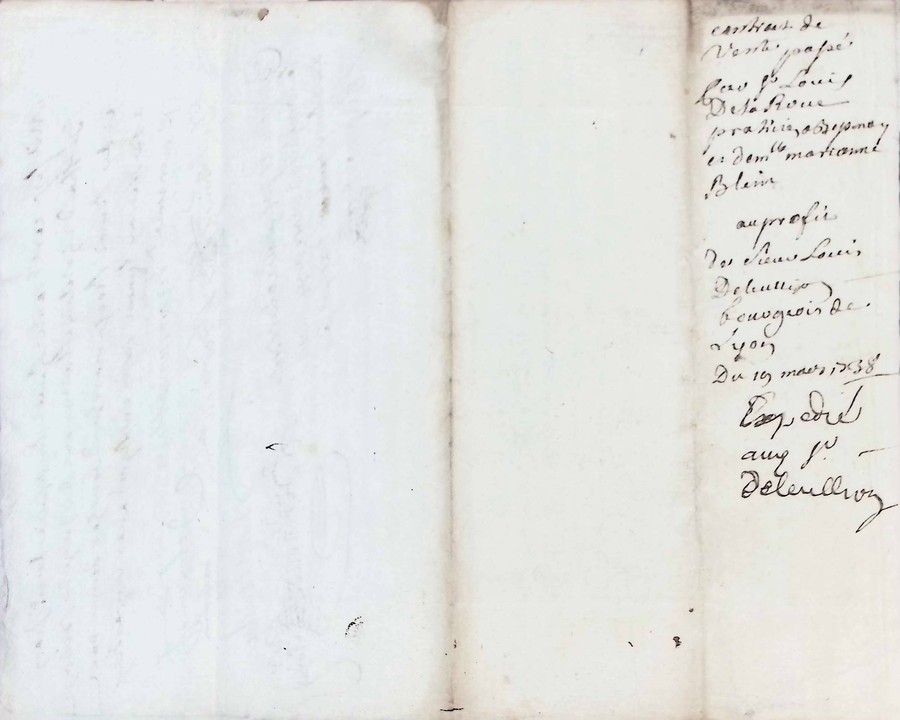 contract de
Vente passé
par Sr Louis
Delà Roue
praticien
et demlle marianne
Blein
au profit
des sieur Louis
Deleullion
bourgeois de
Lyon
Du 19 mars 1738
Expedié
aux Sr
Deleullion